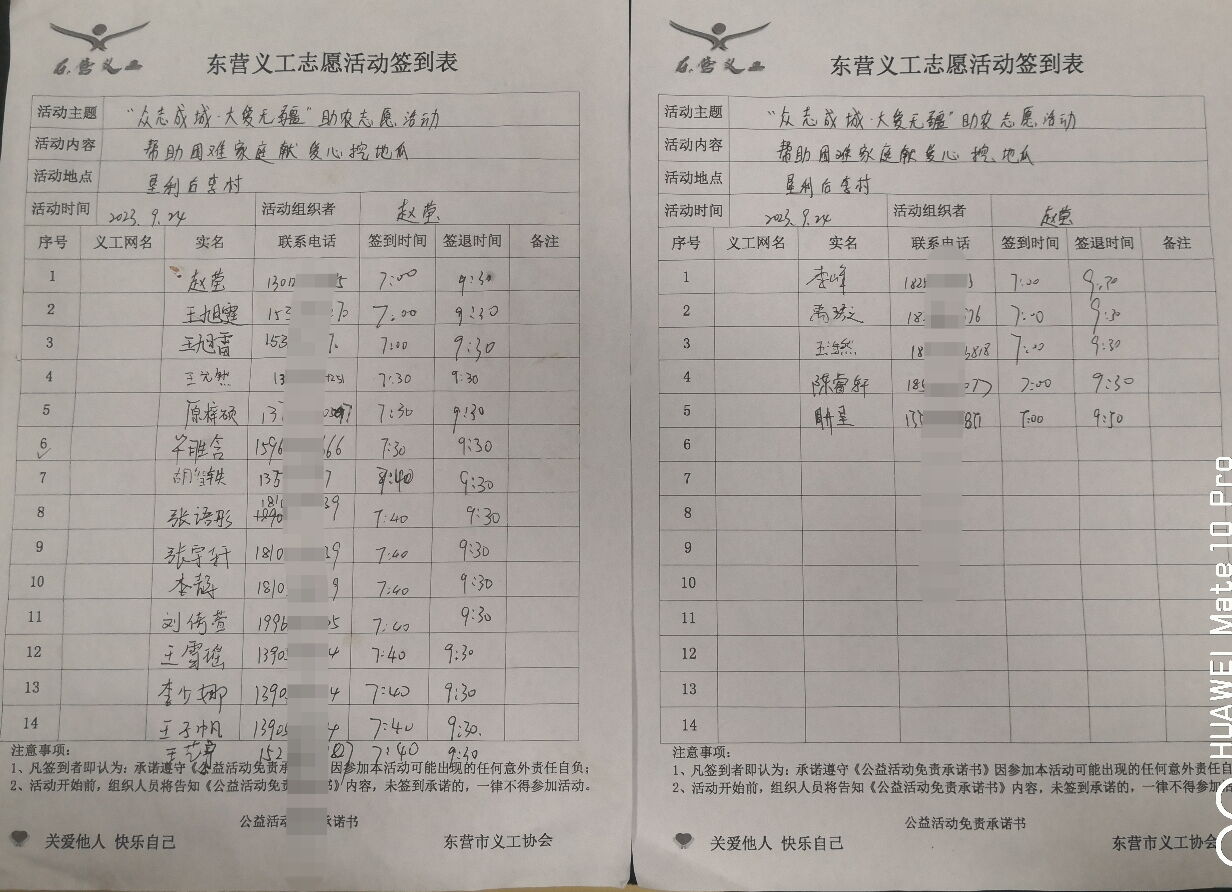 东营义工
东营义工志愿活动签到表
活动主题 "众志成城·大爱无疆"助农志愿活动
活动内容 帮助困难家庭献爱心挖地瓜
活动地点 垦利后李村
活动时间 2023.9.24 活动组织者 赵莹
序号 义工网名 实名 联系电话 签到时间 签退时间 备注
1 赵莹 130 5 7:00 9:30
2 王旭霆 153 70 7:00 9:30
3 王旭雷 153 7:00 9:30
4 王元然 13 7:30 9:30
5 原梓硕 137 7:30 9:30
6 1596 66 7:30 9:30
7 135 7 7:40 9:30
8 张语彤 1810 39 7:40 9:30
9 张宇轩 1810 39 7:40 9:30
10 李静 1810 9 7:40 9:30
11 刘倚萱 1996 05 7:40 9:30
12 王雪瑶 1390 4 7:40 9:30
13 李少娜 1390 4 7:40 9:30
14 王子帆 1390 4 7:40 9:30.
王 152 187 7:40 9:30
注意事项:
1、凡签到者即认为:承诺遵守《公益活动免责 因参加本活动可能出现的任何意外责任自负;
2、活动开始前,组织人员将告知《公益活动免责 书》内容,未签到承诺的,一律不得参加活动。
公益活动 责承诺书
关爱他人 快乐自己 东营市义工协会
东营义工
东营义工志愿活动签到表
活动主题 "众志成城·大爱无疆"助农志愿活动
活动内容 帮助困难家庭献爱心挖地瓜
活动地点 垦利后李村
活动时间 2023.9.24 活动组织者 赵莹
序号 义工网名 实名 联系电话 签到时间 签退时间 备注
1 李峰 182 3 7:00 9:30
2 18 76 7:00 9:30
3 王浩然 18 5818 7:00 9:30
4 陈睿轩 185 077 7:00 9:30
5 135 871 7:00 9:50
6
7
8
9
10
11
12
13
14
注意事项:
1、凡签到者即认为:承诺遵守《公益活动免责承诺书》因参加本活动可能出现的任何意外责任自
2、活动开始前,组织人员将告知《公益活动免责承诺书》内容,未签到承诺的,一律不得参加
公益活动免责承诺书
关爱他人 快乐自己 东营市义工协会
HUAWEI Mate 10 Pro